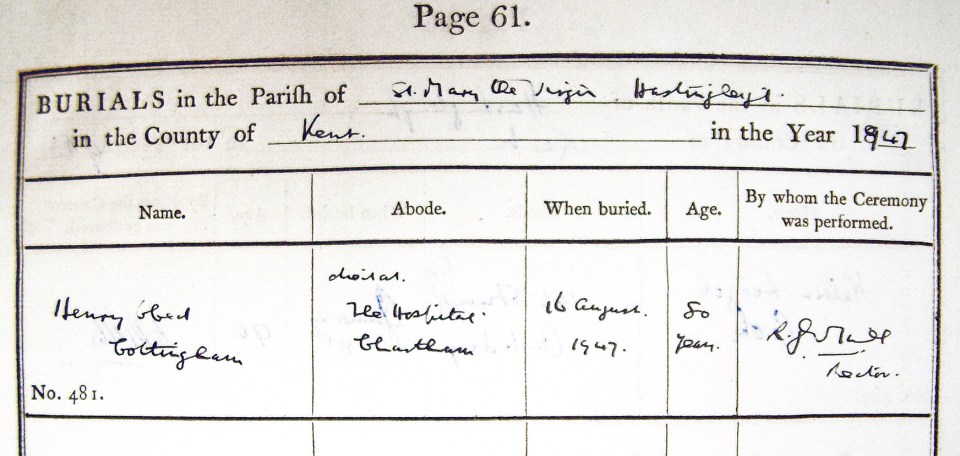 Page 61.
BURIALS in the Parish of St. Mary the Virgin Hastingleigh.
in the County of Kent. in the Year 1947
Name. Abode. When buried. Age. By whom the Ceremony was performed.
died at.
Henry Obed The Hospital. 16 August. 80
Cottingham Chartham 1947. years.
Rector.
No. 481.